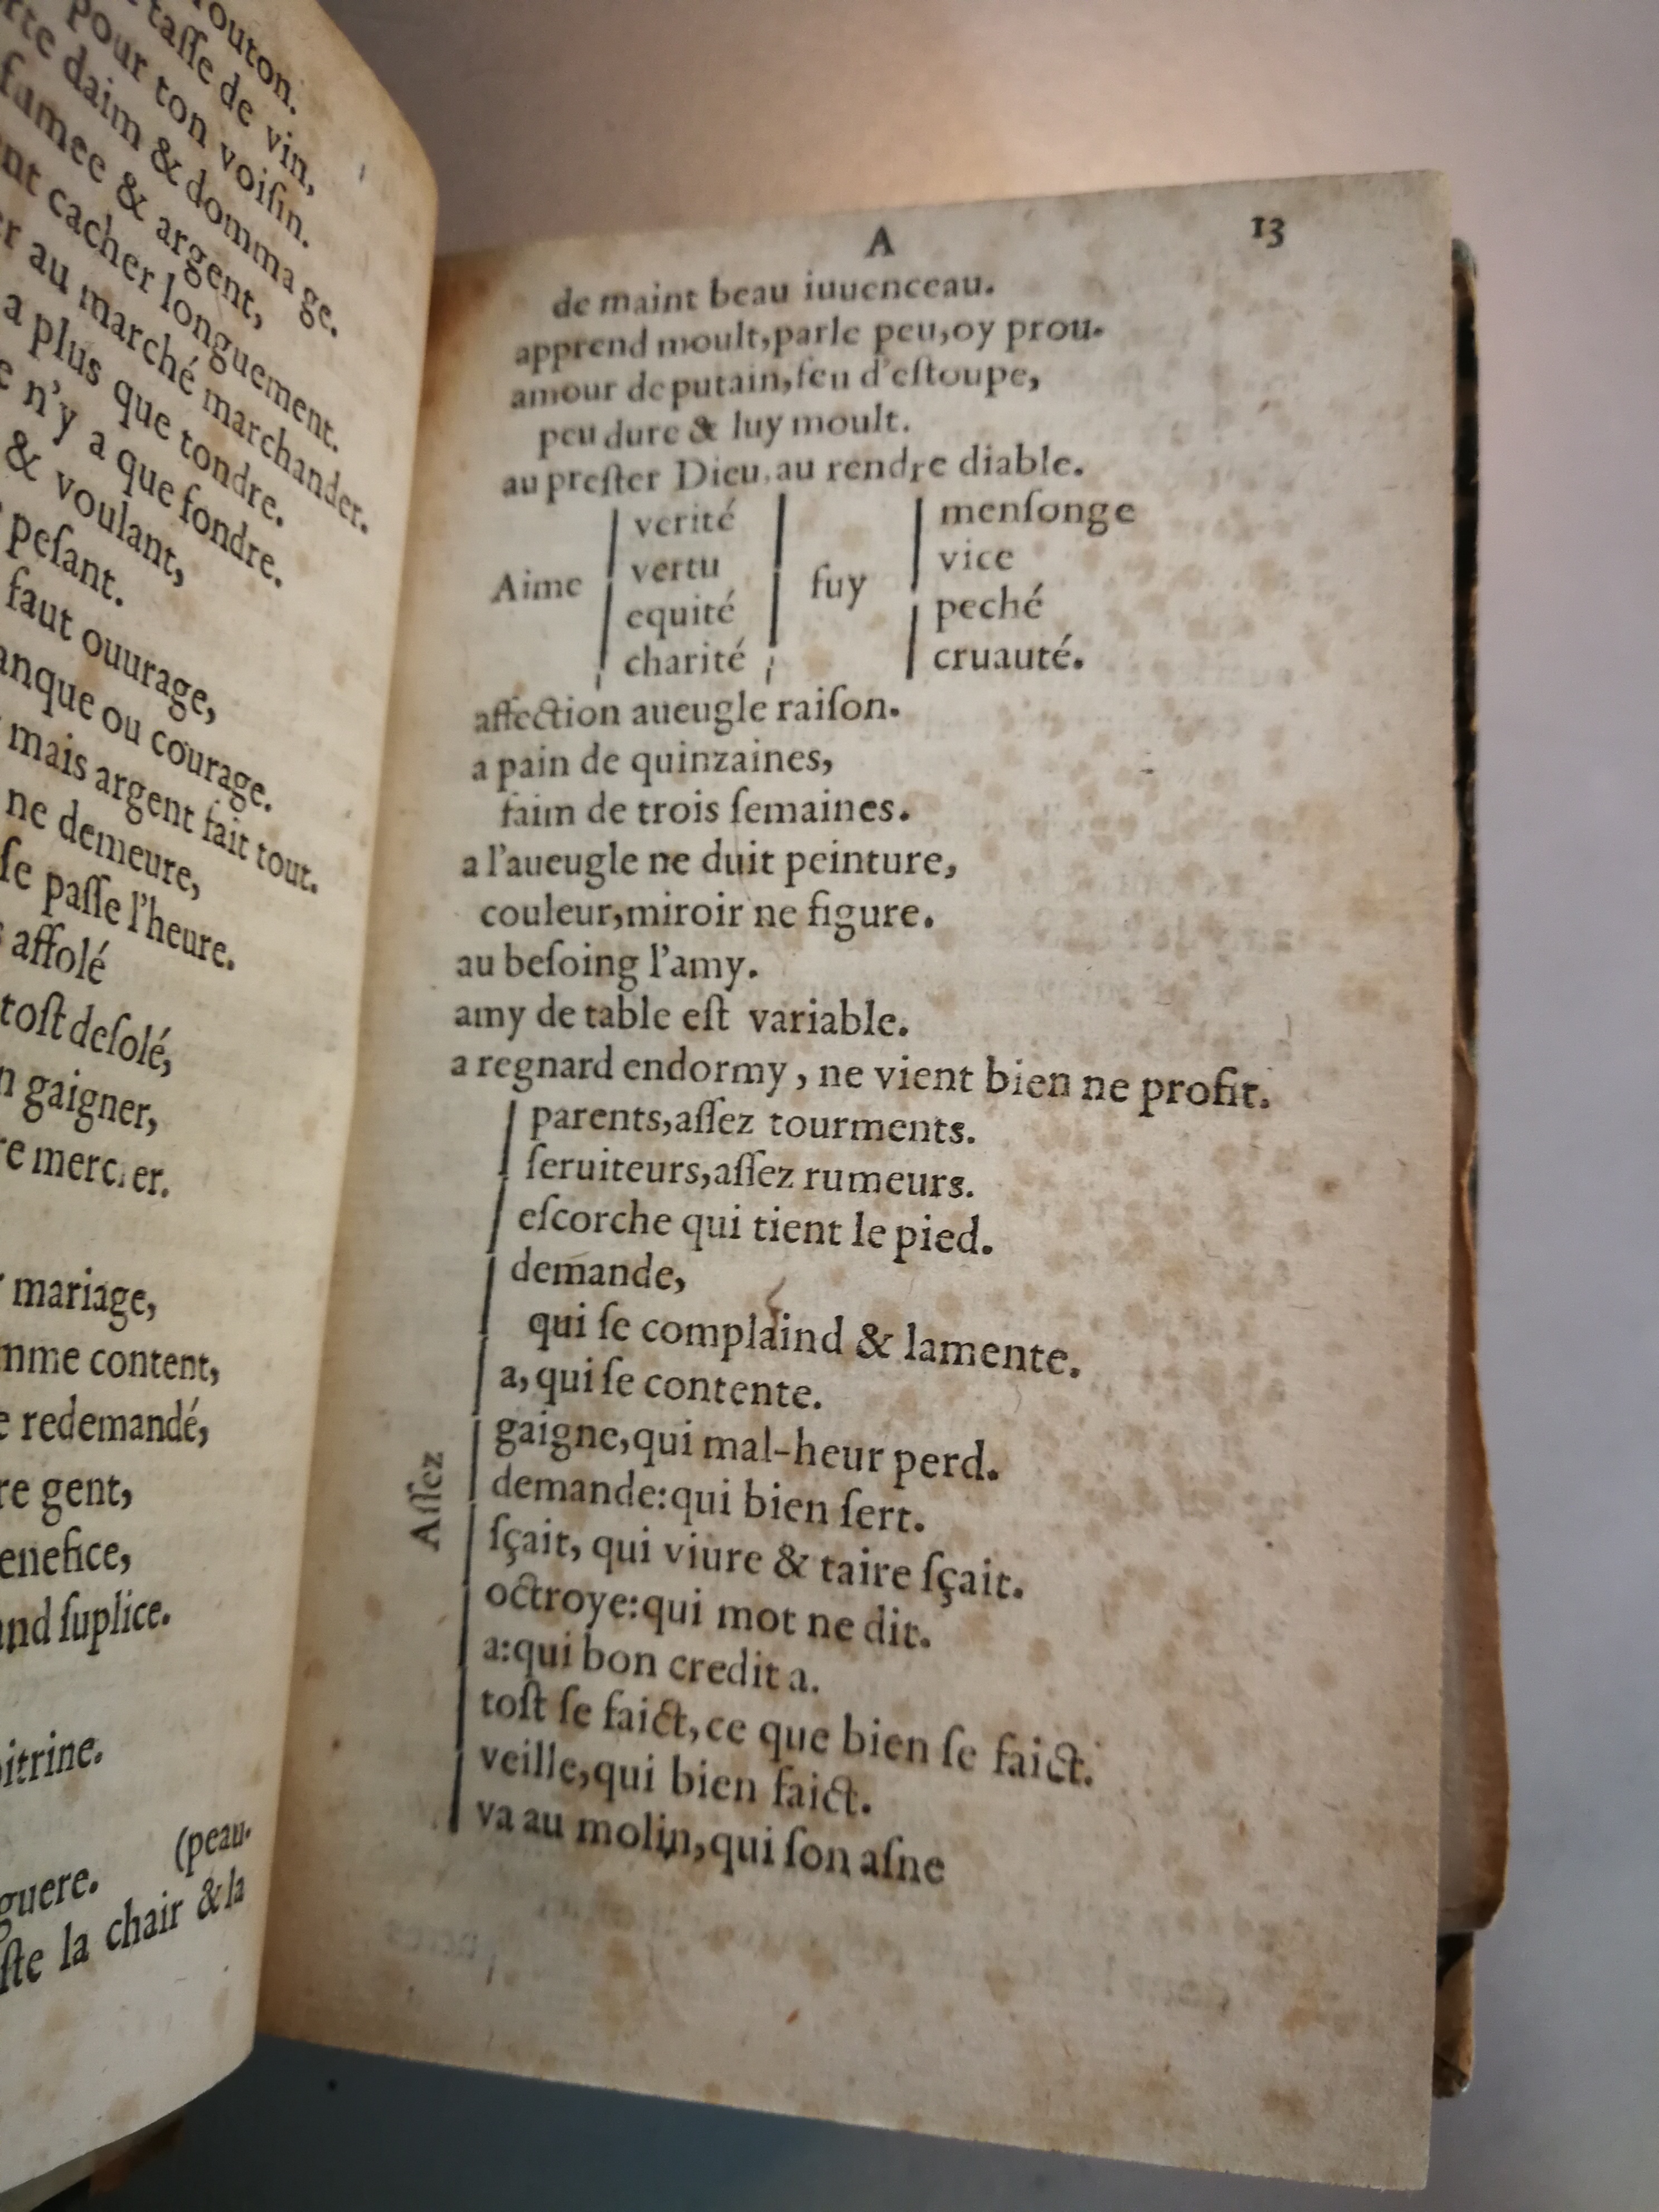 outon.
tasse de vin,
pour ton voiſin.
daim & domma ge.
fumee & argent,
cacher longuement.
au marché marchander.
a plus que tondre.
n'y a que fondre.
& voulant,
peſant.
faut ouurage,
ou courage.
mais argent fait tout.
ne demeure,
ſe paſſe l'heure.
affolé
toſt deſolé,
gaigner,
mercier.
mariage,
content,
redemandé,
gent,
ſuplice.
(peau.
guere.
la chair & la
A 13
de maint beau iuuenceau.
apprend moult,parle peu,oy prou.
amour de putain,feu d'eſtoupe,
peu dure & luy moult.
au preſter Dieu,au rendre diable.
verité menſonge
vertu vice
Aime fuy
equité peché
charité cruauté.
affection aueugle raiſon.
a pain de quinzaines,
faim de trois ſemaines.
a l'aueugle ne duit peinture,
couleur,miroir ne figure.
au beſoing l'amy.
amy de table eſt variable.
a regnard endormy, ne vient bien ne profit.
Aſſez
parents,aſſez tourments.
ſeruiteurs,aſſez rumeurs.
eſcorche qui tient le pied.
demande,
qui ſe complaind & lamente.
a, qui ſe contente.
gaigne,qui mal-heur perd.
demande:qui bien ſert.
ſçait, qui viure & taire ſçait.
octroye:qui mot ne dit.
a:qui bon credit a.
toſt ſe faict,ce que bien ſe faict.
veille,qui bien faict.
va au molin,qui ſon aſne